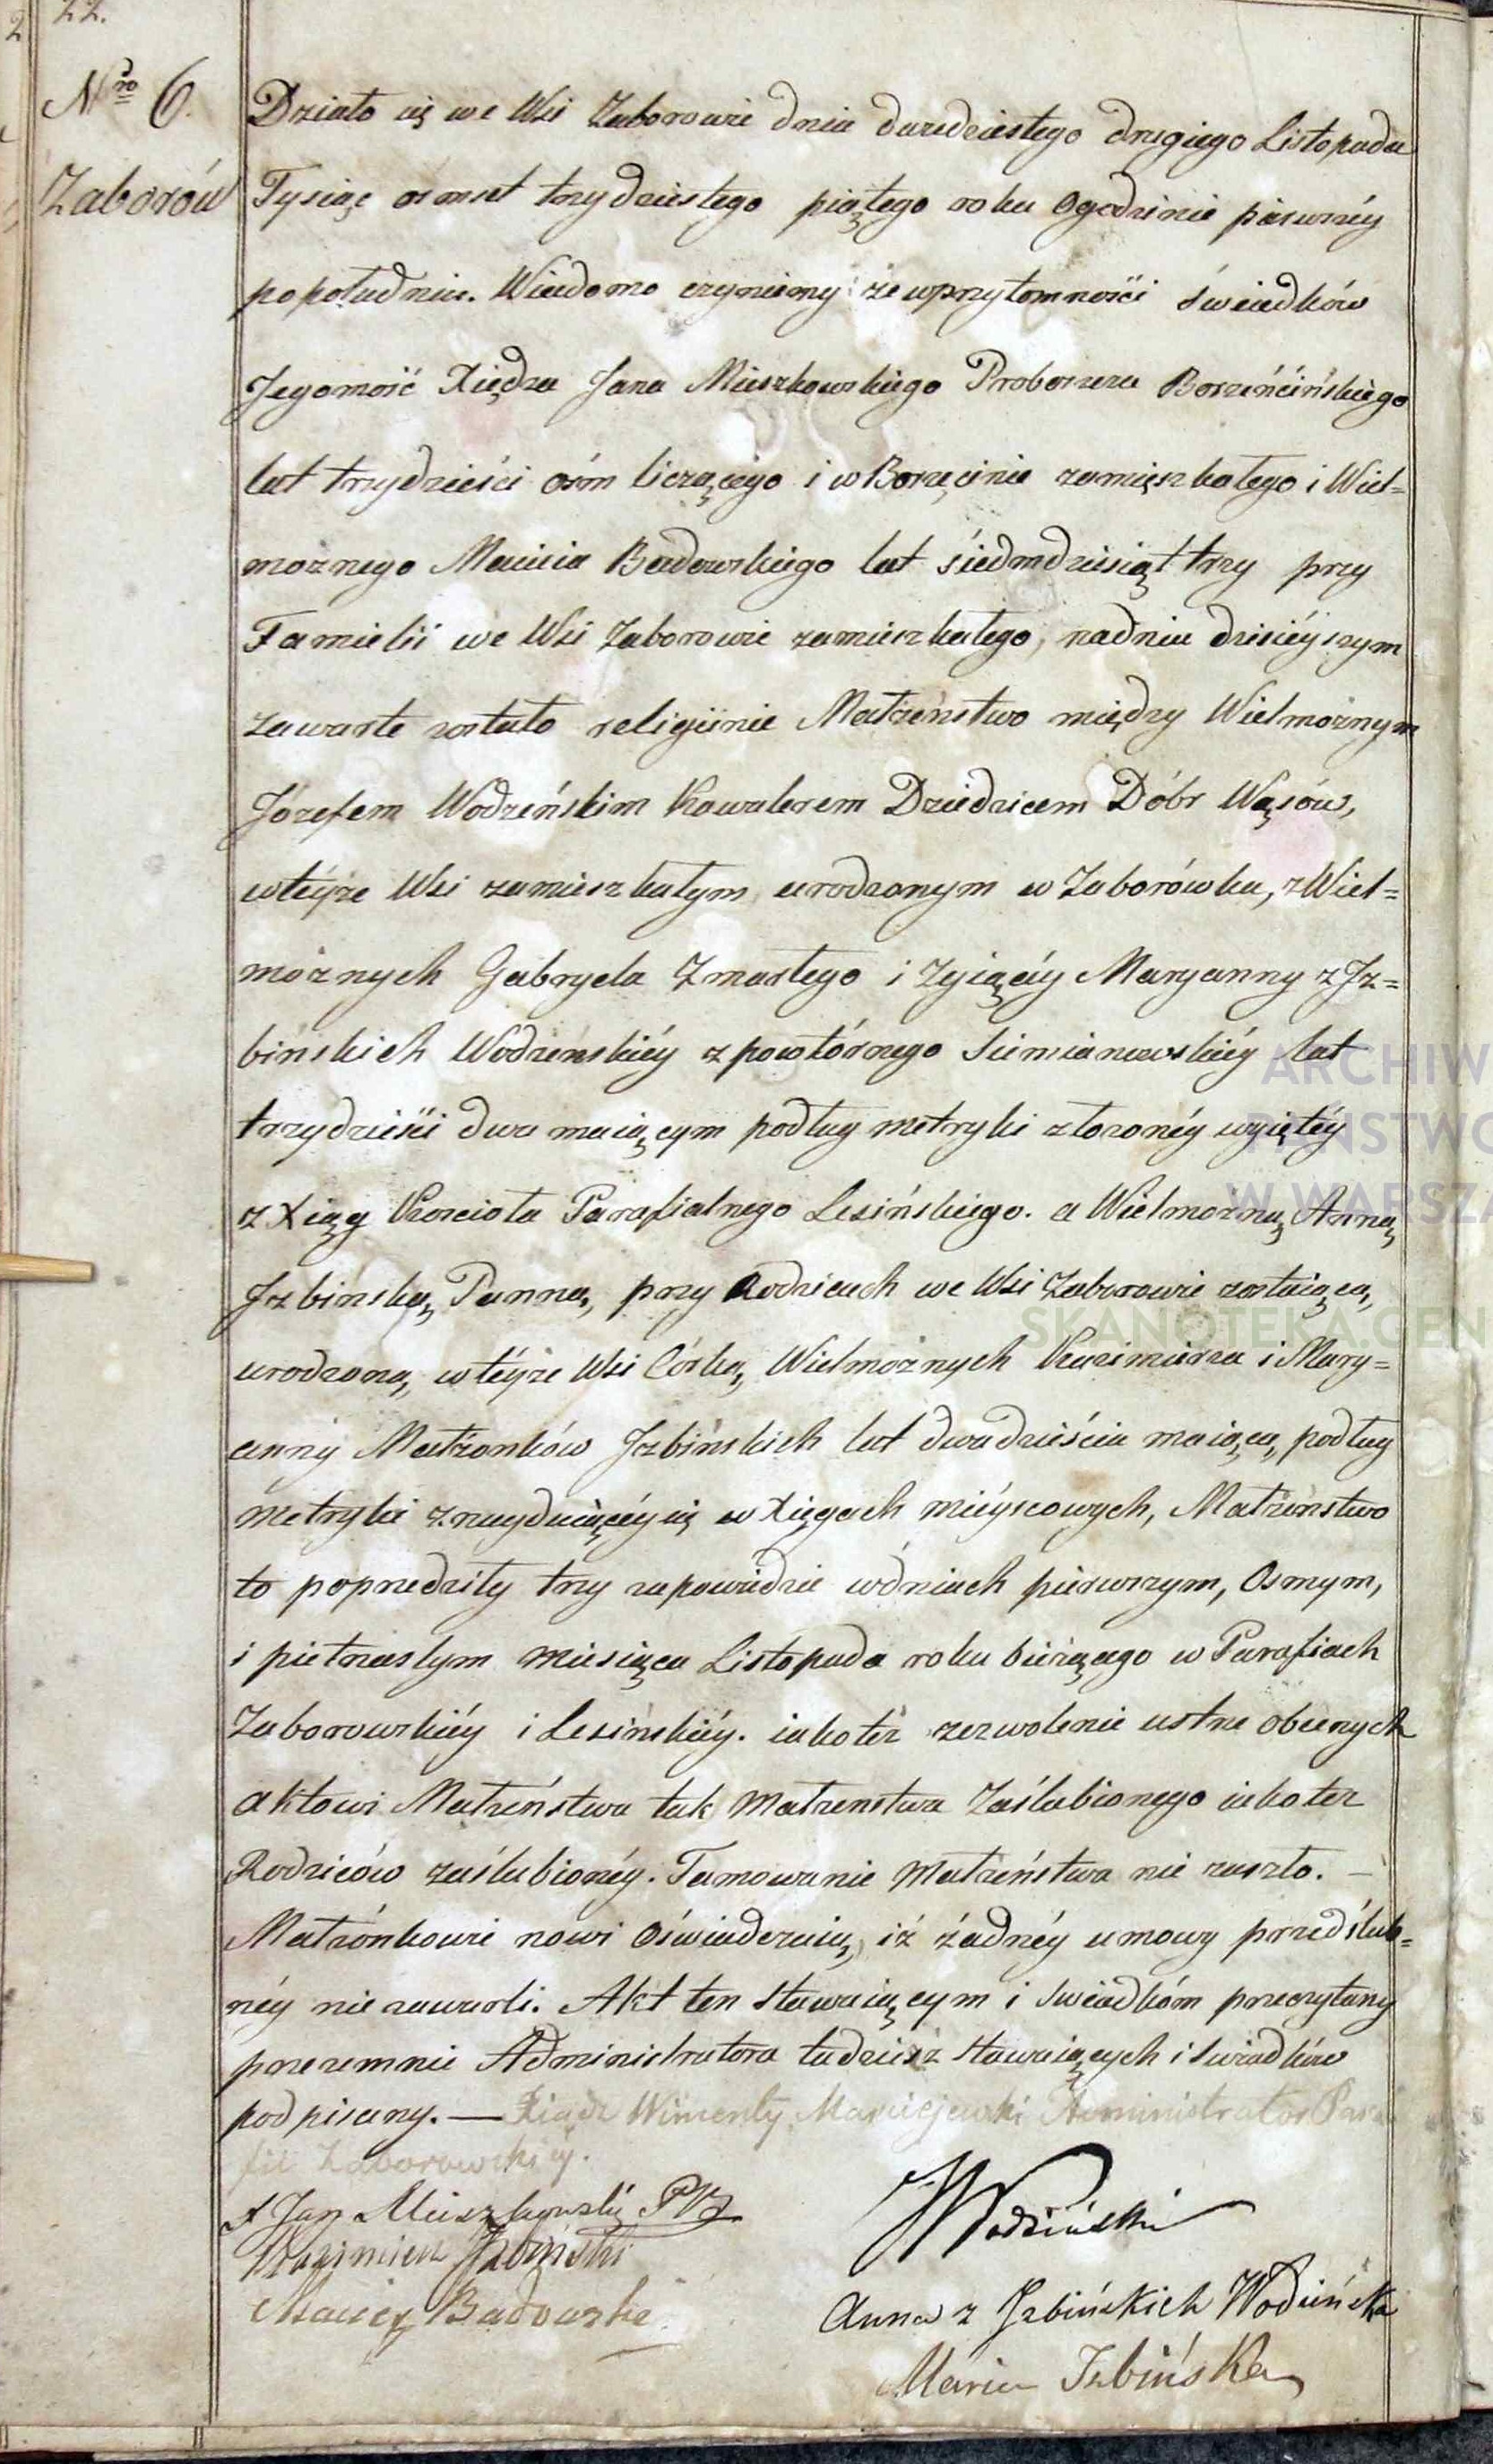 22.
Nro 6.
Zaborów
Działo się we Wsi Zaborowie dnia dwudziestego drugiego Listopada
Tysiąc osmset trzydziestego piątego roku Ogodzinie pierwszéy
popołudniu. Wiadomo czyniemy że wprzytomności świadków
Jegomość Xiędza Jana Mieszkowskiego Proboszcza Borzeńcińskiego
lat trzydzieści ośm liczącego i w Borzęcinie zamięszkałego i Wiel=
możnego Macieia Badowskiego lat siedmdziesiąt trzy przy
Familii we Wsi Zaborowie zamieszkałego, nadniu dzisiéyszym
zawarte zostało religiinie Małżeństwo między Wielmożnym
Józefem Wodzeńskim Kawalerem Dziedzicem Dóbr Wąsów,
wtéyże Wsi zamieszkałym urodzonym w Zaborówku, z Wiel=
możnych Gabryela Zmarłego i Zyiącéy Maryanny z Iz=
bińskich Wodzeńskiéy z powtórnego Siemianowskiéy lat
trzydzieści dwa maiącym podług metryki złożonéy wyiętéy
z Xiąg Kościoła Parafialnego Lesińskiego. a Wielmożną Anną
Izbinską Panną, przy Rodzicach we Wsi Zaborowie zostaiącą,
urodzoną, wtéyże Wsi Córką, Wielmożnych Kazimierza i Mary=
anny Małżonków Izbińskich lat dwadzieścia maiącą, podług
metryki znayduiącéy się w Xięgach miéyscowych, Małżeństwo
to poprzedziły trzy zapowiedzie wdniach pierwszym, Osmym,
i piętnastym Miesiąca Listopada roku bieżącego w Parafiach
Zaborowskiéy i Lesińskiéy. iakoteż zezwolenie ustne obecnych
aktowi Małżeństwa tak Małzenstwa Zaślubionego iakotez
Rodziców zaślubionéy. Tamowanie Małżeństwa nie zaszło. —
Małżónkowie nowi Oświadczaią, iż żadnéy umowy przedślub=
néy nie zawarli. Akt ten stawaiącym i swiadkóm przeczytany
przezemnie Administratora tudzież stawaiących i swiadków
podpisany. — Xiądz Wincenty Maciejewski Administrator Para
fii Zaborowskiéy.
X Jan Mieszkowski PB
Wodziński
Kazimierz Izbiński
Maciey Badowski
Anna z Izbińskich Wodzińska
Maria Izbińska
ARCHIW
PAŃSTWO
W WARSZA
SKANOTEKA.GEN